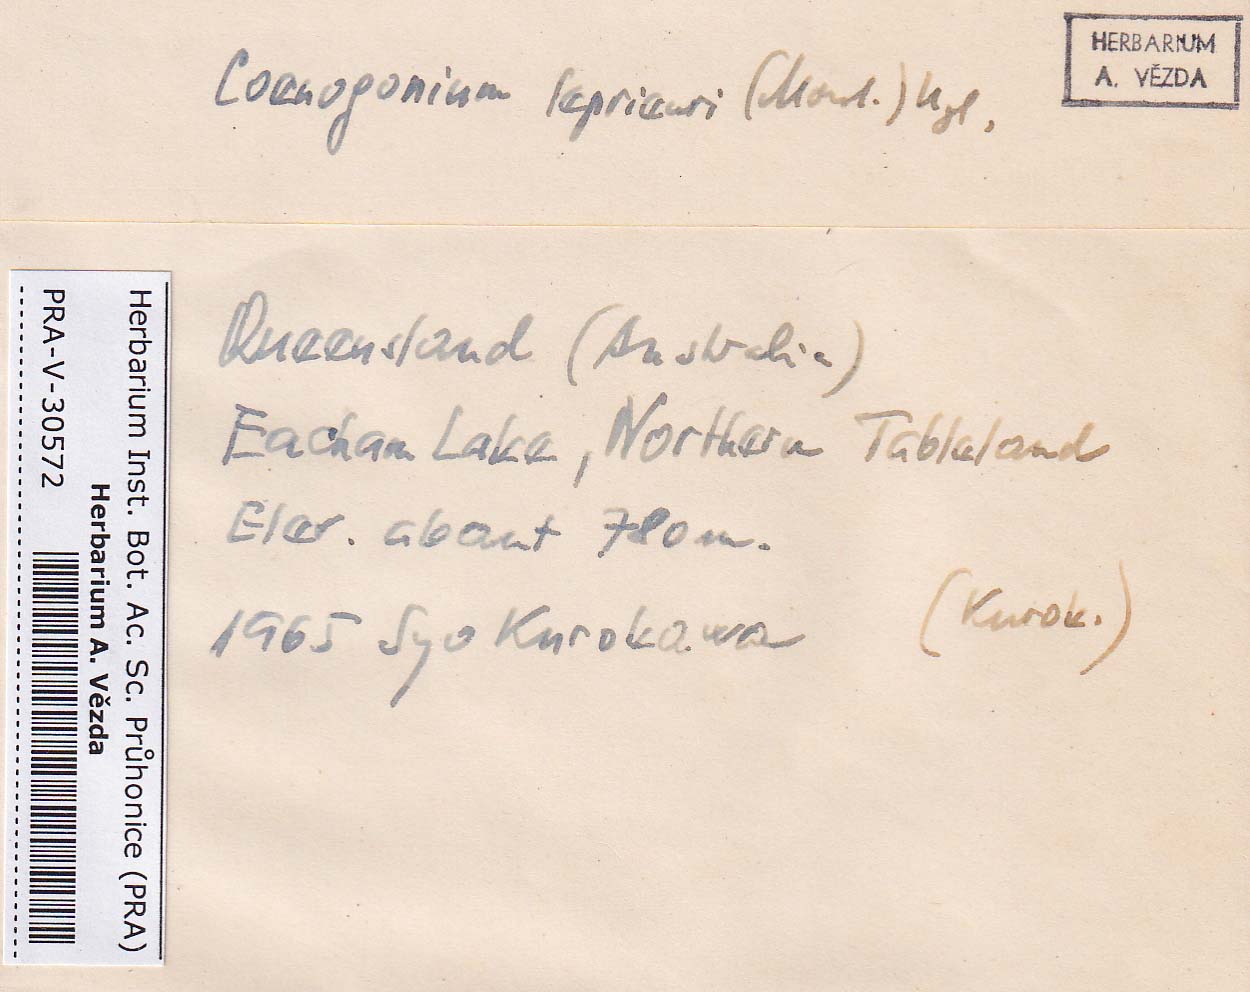 HERBARIUM
A. VĚZDA
Coenogonium leprieuri (Mont.) Nyl.
Queensland (Australia)
Eacham Lake, Northern Tableland
Elev. about 780 m.
1965 Syo Kurokawa (Kurok.)
Herbarium Inst. Bot. Ac. Sc. Průhonice (PRA)
Herbarium A. Vězda
PRA-V-30572